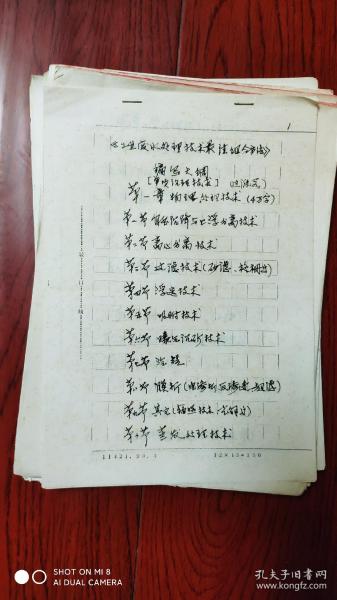 1
《工业废水处理技术最佳组合方法》
编写大纲
[单项处理技术]
第一章 物理处理技术 (4万字)
第一节 自然沉降与上浮分离技术
第二节 离心分离技术
第三节 过滤技术(砂滤、
第四节 浮选技术
第五节 吸附技术
第六节
第七节
第八节 膜析(电渗析、反渗透、超滤)
第九节 其它(
第十节 蒸发处理技术
11421.99.4
12×15=180
SHOT ON MI 8
AI DUAL CAMERA
孔夫子旧书网
www.kongfz.com